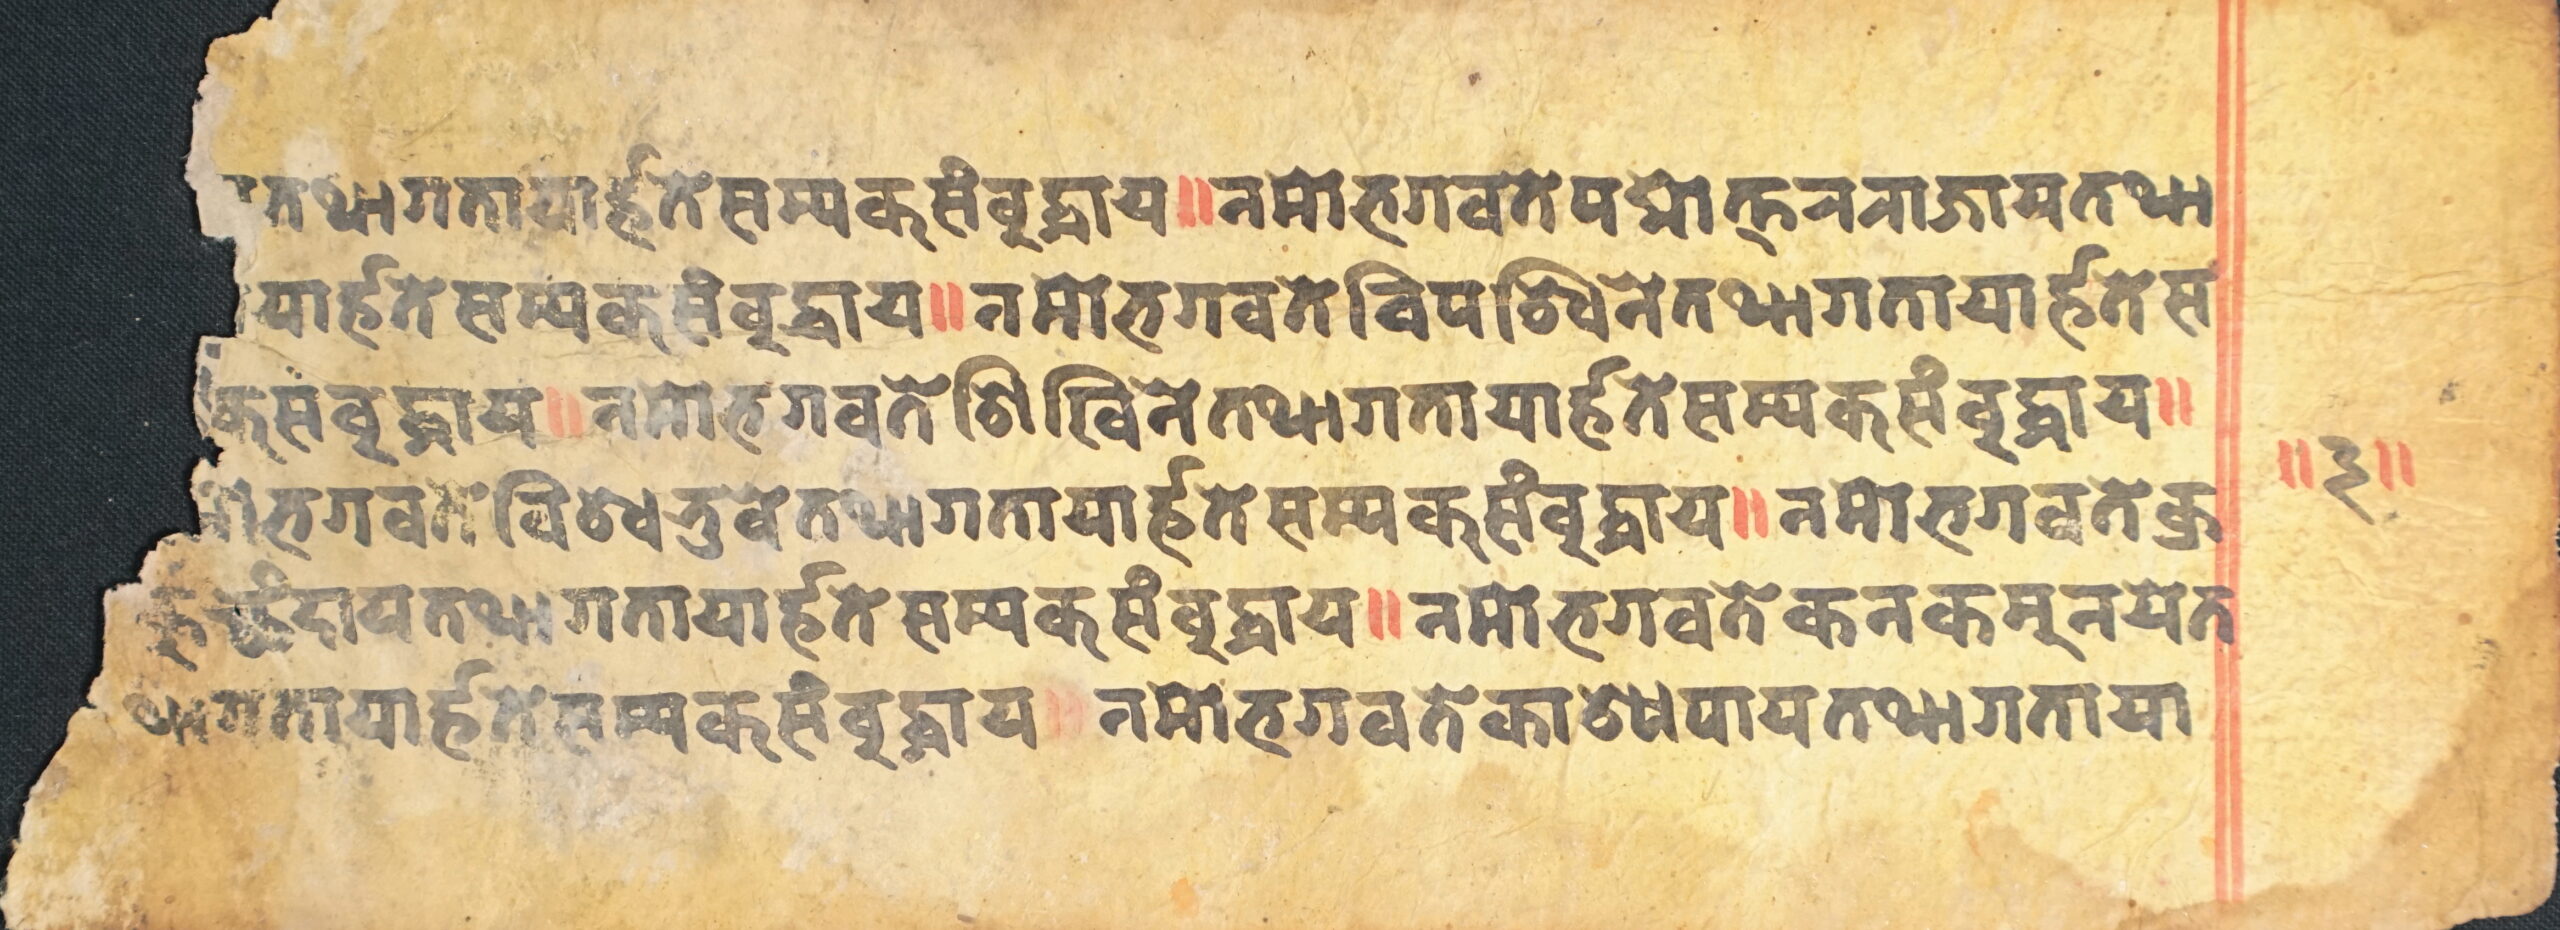 तथागतायार्हते सम्यक्संबुद्धाय ॥ नमो भगवते पद्मोत्तरराजाय तथा
यार्हते सम्यक्संबुद्धाय ॥ नमो भगवते विपश्विने तथागतायार्हते स
क्संबुद्धाय ॥ नमो भगवते शिखिने तथागतायार्हते सम्यक्संबुद्धाय ॥
भगवते विश्वभुवे तथागतायार्हते सम्यक्संबुद्धाय ॥ नमो भगवते क्र
कुच्छंदाय तथागतायार्हते सम्यक्संबुद्धाय ॥ नमो भगवते कनकमुनये त
थागतायार्हते सम्यक्संबुद्धाय ॥ नमो भगवते काश्यपाय तथागताया
॥ ३ ॥